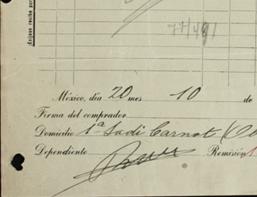 77/481
México, día 20 mes 10 de
Firma del comprador
Domicilio 1ª Sadi Carnot
Dependiente Remisión 1